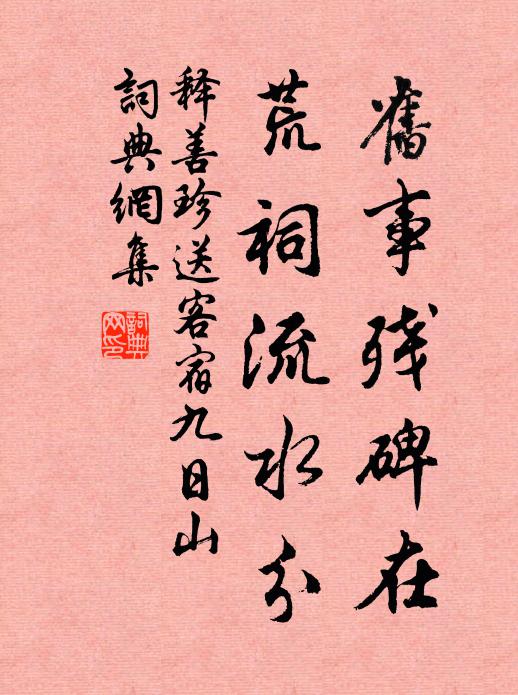 舊事残碑在
荒祠流水分
释善珍送客宿九日山
詞典網集
詞典
网印